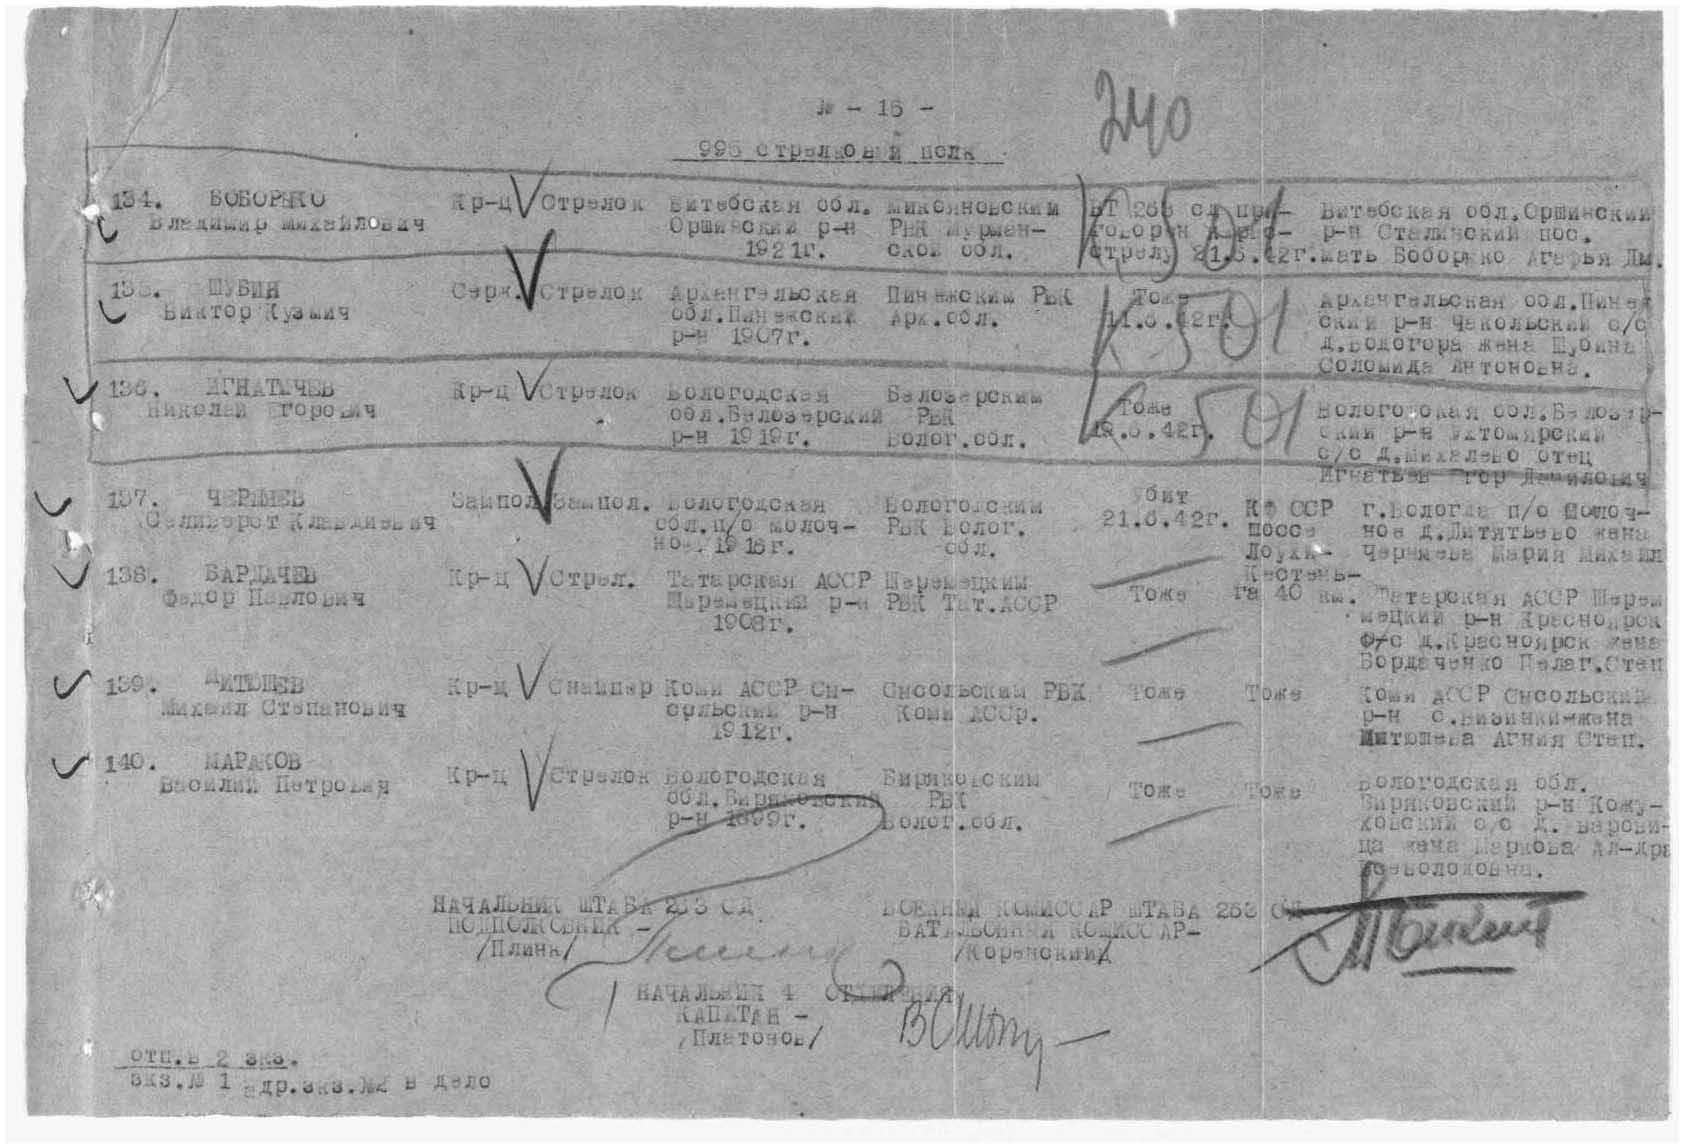 № - 16 -
240
995 стрелковый полк
134. БОБОРЫКО Кр-ц Стрелок Витебская обл. Микояновским ВТ 263 сд при- Витебская обл.Оршинский
Владимир Михайлович Оршинский р-н РВК Мурман- говорен к р-н Сталинский пос.
1921г. ской обл. стрелу 21.6.42г. мать Боборыко Агафья Дм.
К 501
135. ШУБИН Серж. Стрелок Архангельская Пинежским РВК Тоже Архангельская обл.Пинеж
Виктор Кузмич обл.Пинежский Арх.обл. 11.6.42г. ский р-н Чакольский с/с
р-н 1907г. д.Водогора жена Шубина
Соломида Антоновна.
К 501
136. ИГНАТЬЧЕВ Кр-ц Стрелок Вологодская Белозерским Тоже Вологодская обл.Белозер-
Николай Егорович обл.Белозерский РВК .6.42г. ский р-н Ухтомярский
р-н 1919г. Волог.обл. с/с д.Михалево отец
Игнатьев Егор Данилович
К 501
137. ЧЕРНЯЕВ Зампол. Зампол. Вологодская Вологодским Убит КФ ССР г.Вологда п/о Молоч-
Селиверст Клавдиевич обл.п/о молоч- РВК Волог. 21.6.42г. шоссе ное д.Дитятьево жена
ное. 1916г. обл. Лоухи- Черняева Мария Михайл
Кестень-
138. БАРДАЧЕВ Кр-ц Стрел. Татарская АССР Шереметским Тоже га 40 км. Татарская АССР Шерем
Федор Павлович р-н РВК Тат.АССР мецкий р-н Красноярск
1908г. ф/с д.Красноярск жена
Бордаченко Пелаг.Степ
139. МИТЮШЕВ Кр-ц Снайпер Коми АССР Сы- Сысольским РВК Тоже Тоже Коми АССР Сысольский
Михаил Степанович сольский р-н Коми АССр. р-н с.Визинки-жена
1912г. Митюшева Агния Степ.
140. МАРАКОВ Кр-ц Стрелок Вологодская Биряковским Тоже Тоже Вологодская обл.
Василий Петрович обл.Биряковский РВК Биряковский р-н Кожу-
р-н 1899г. Волог.обл. ховский с/с д.
жена Маркова Ал-дра
Всеволодовна.
НАЧАЛЬНИК ШТАБА 263 СД ВОЕННЫЙ КОМИССАР ШТАБА 263 СД
ПОДПОЛКОВНИК - БАТАЛЬОННЫЙ КОМИССАР-
/Плинк/ /Коренский/
НАЧАЛЬНИК 4 ОТДЕЛЕНИЯ
КАПИТАН -
/Платонов/
отп.в 2 экз.
экз.№ 1 адр.экз.№2 в дело